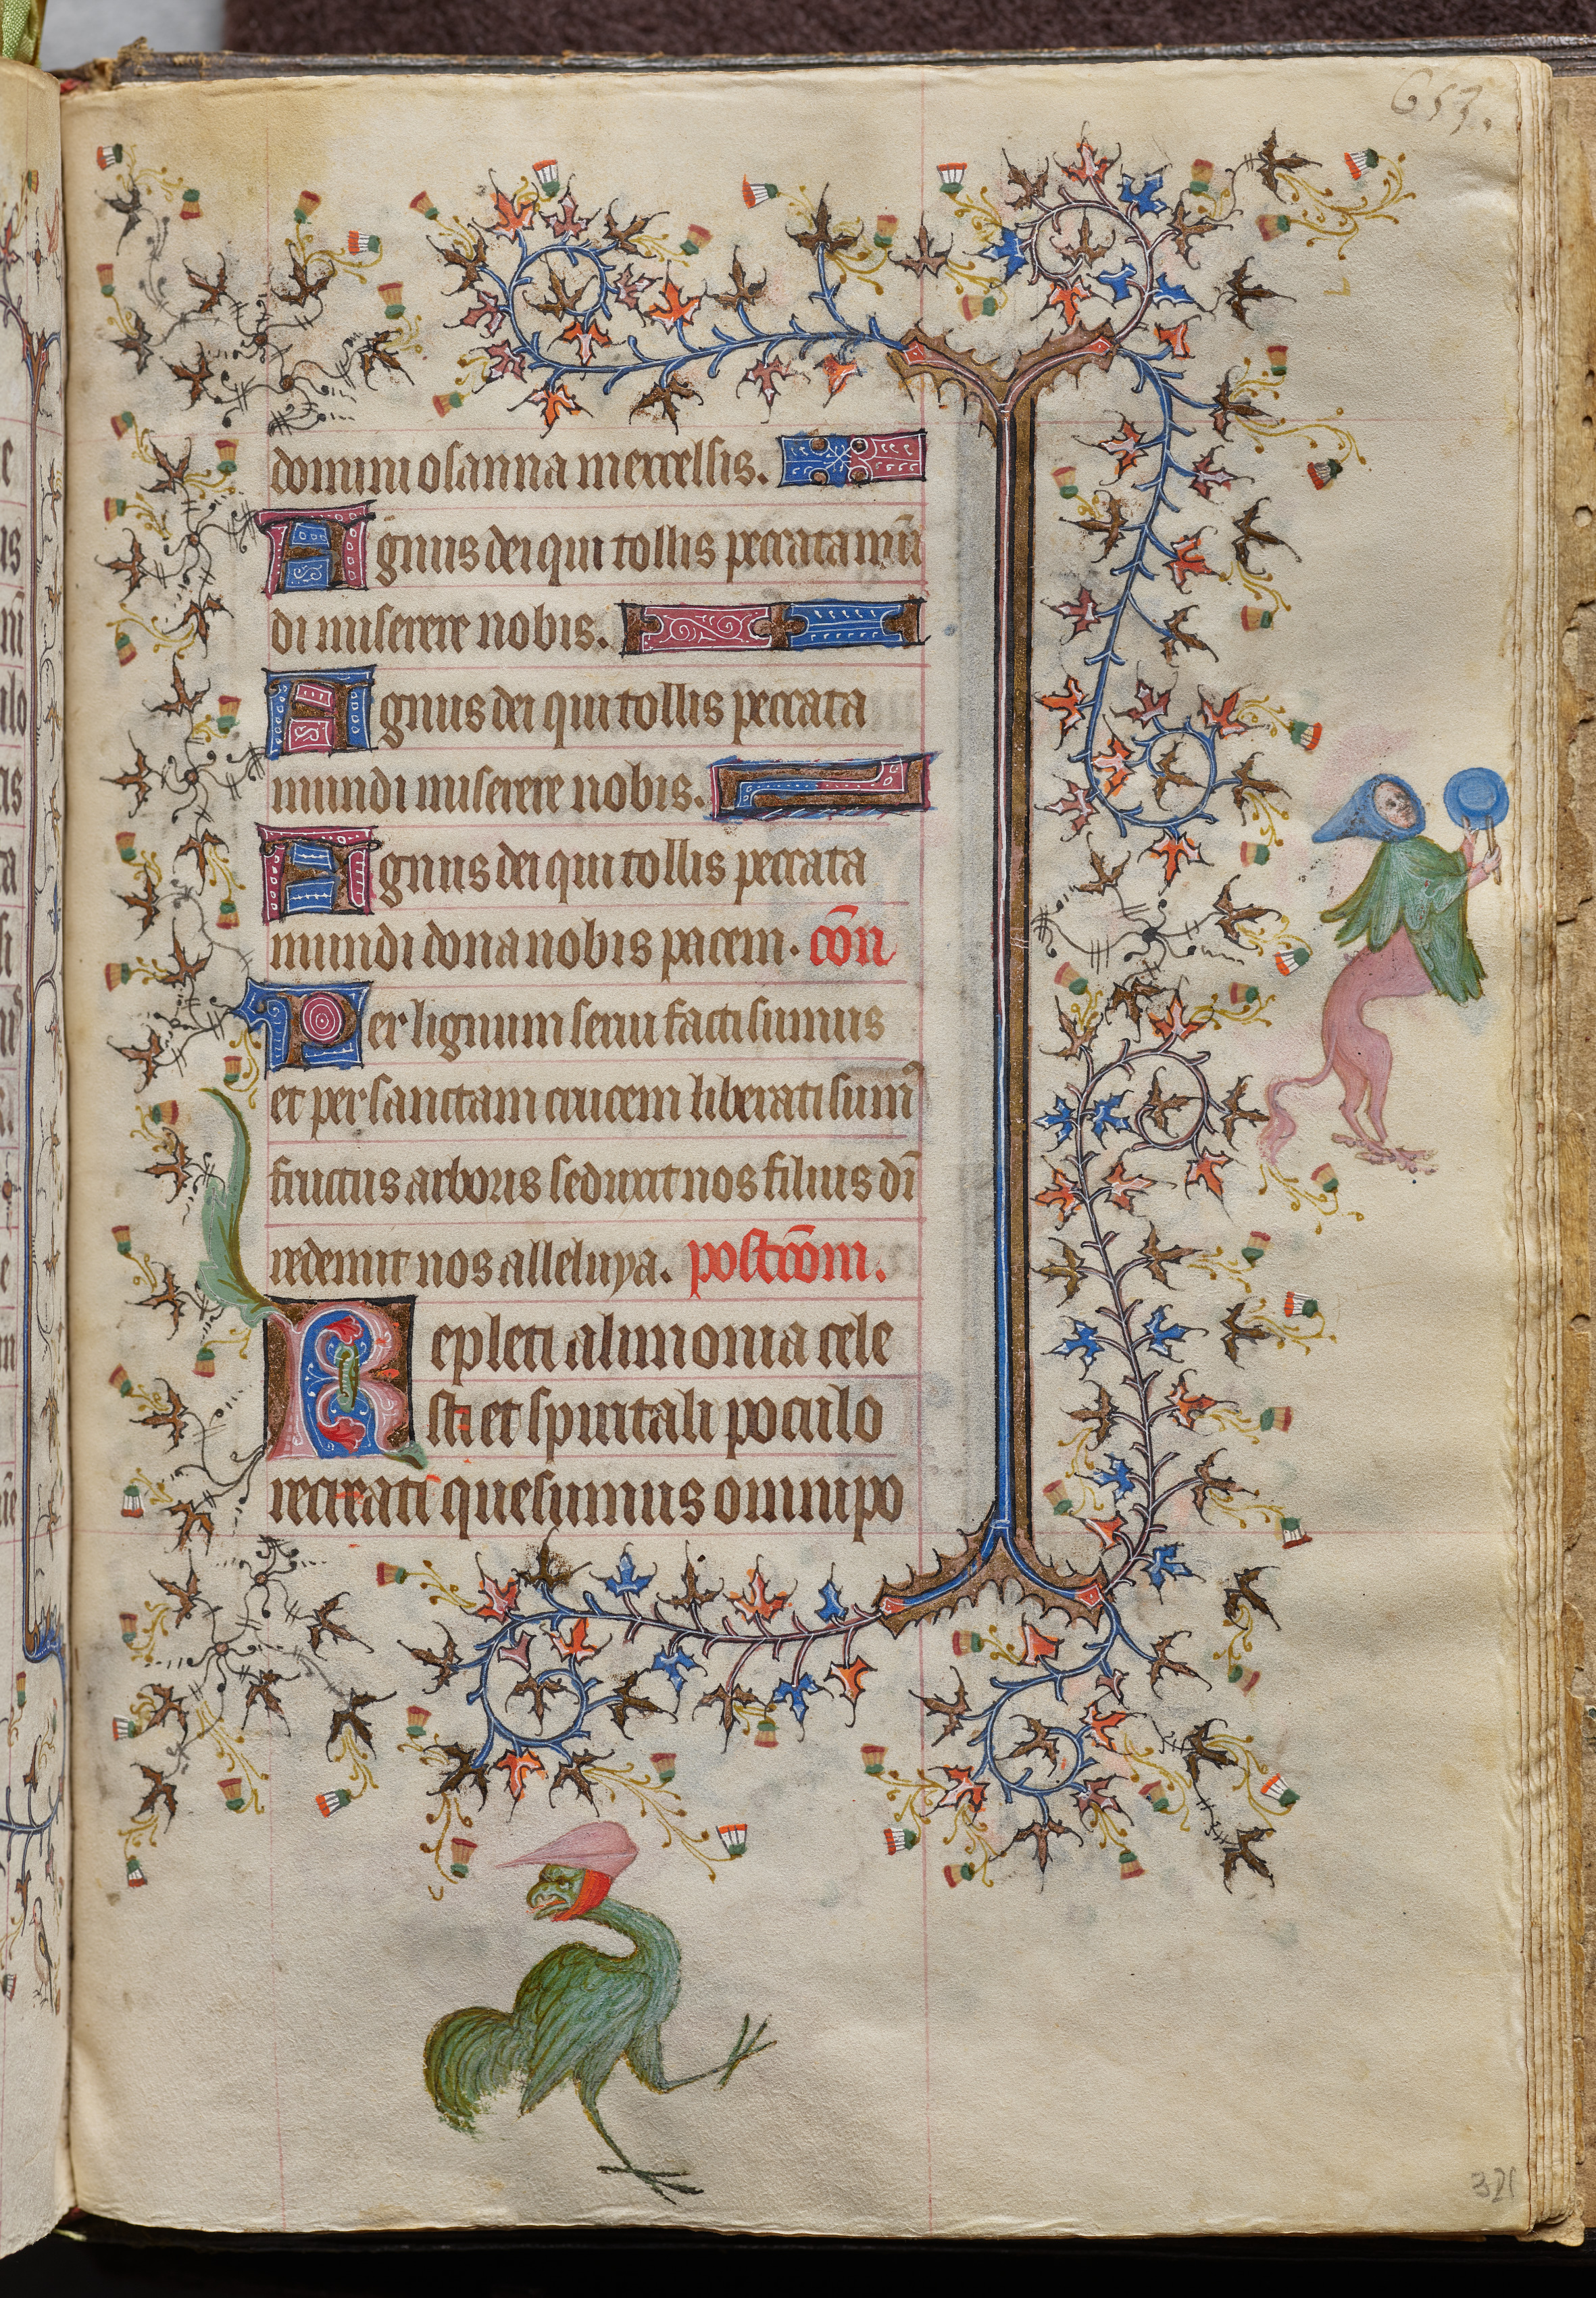 653.
domini osanna in excelsis.
Agnus dei qui tollis peccata mū
di miserere nobis.
Agnus dei qui tollis peccata
mundi miserere nobis.
Agnus dei qui tollis peccata
mundi dona nobis pacem. cōn
Per lignum serui facti sumus
et per sanctam crucem liberati sumꝰ
fructus arboris seduxit nos filius dī
redemit nos alleluya. postcōm.
Repleti alimonia cele
sti et spiritali poculo
recreati quesumus omnipo
321